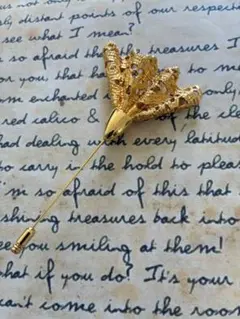 distant points of our respective
see what I mean?
so afraid the treasures I
or you, that ha to me
enchanted
red calico & of the cle
with every latitud
to carry in the hold to pleas
I'm so afraid of this that
shing treasures back into
see you smiling at them!
hat if you do? It's your
can't come into the room